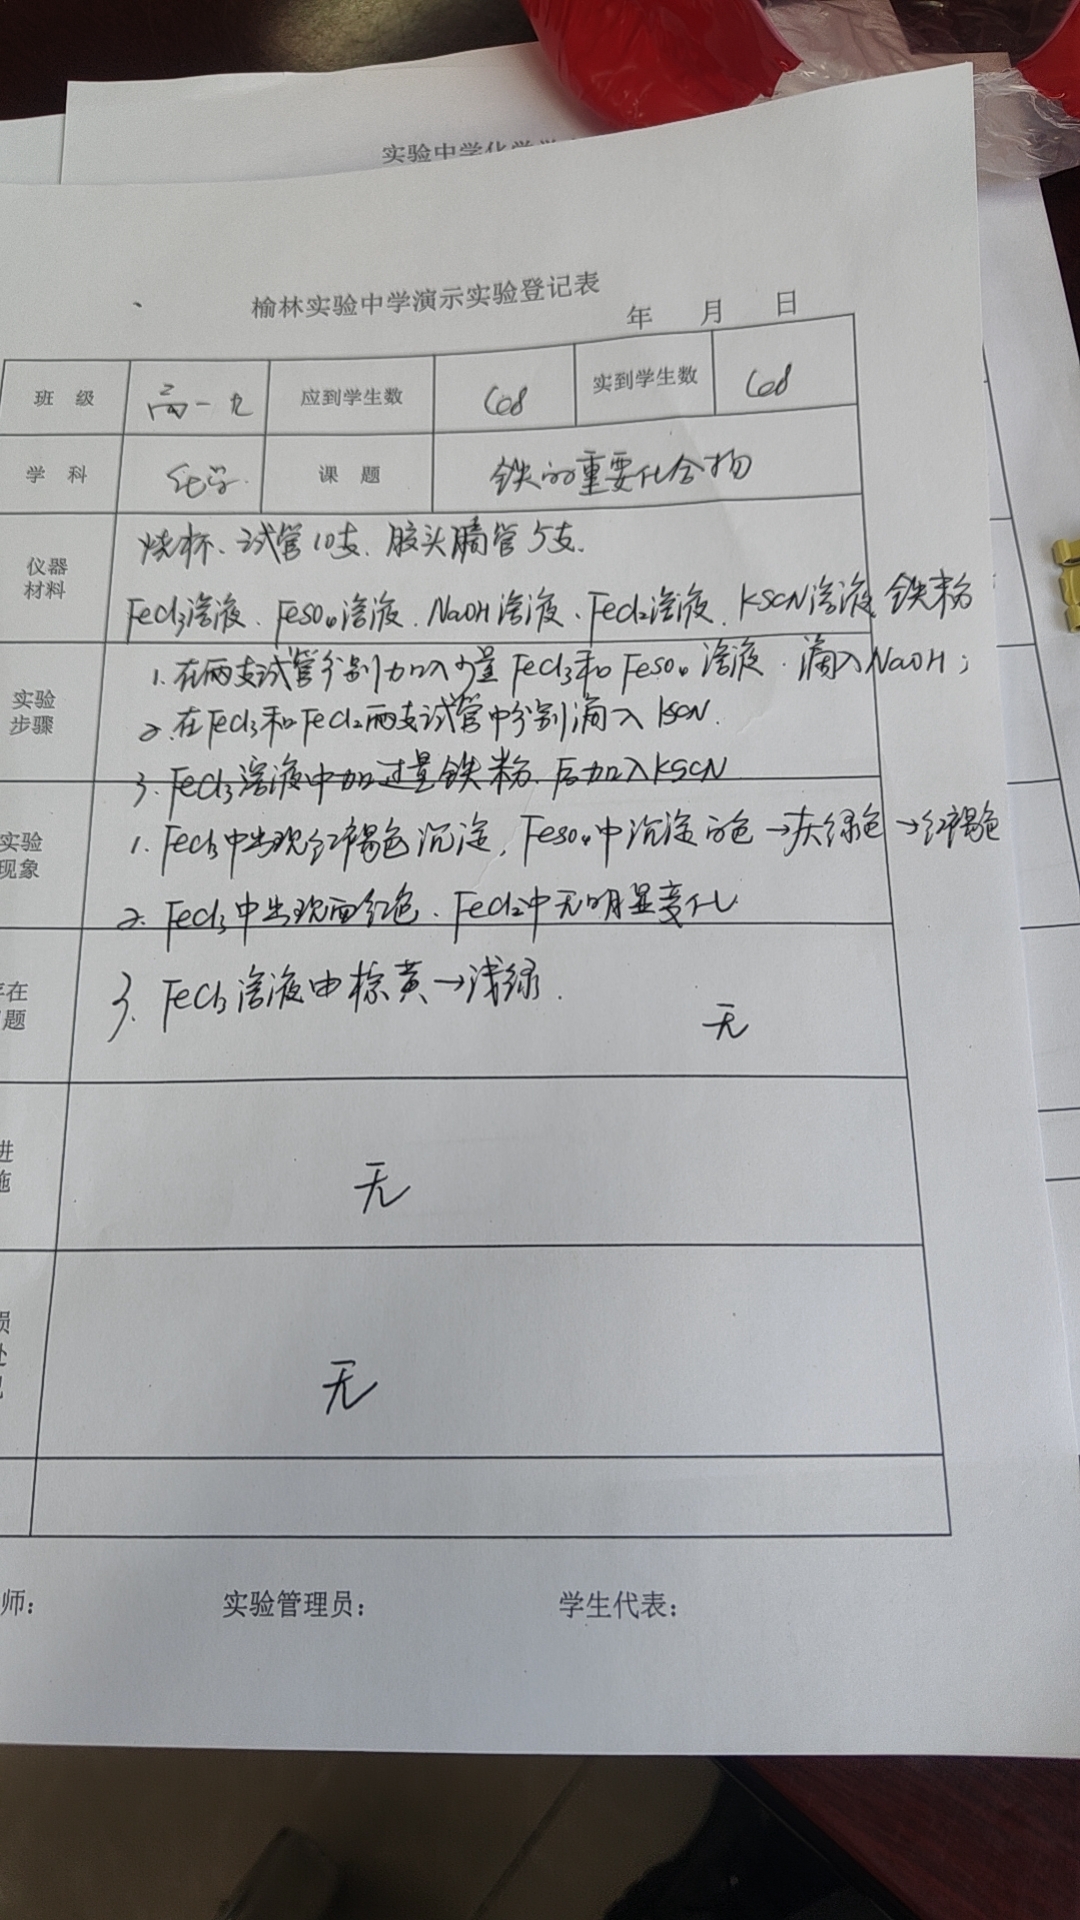 实验中学化学
榆林实验中学演示实验登记表
年 月 日
班 级 高一九 应到学生数 608 实到学生数 608
学 科 化学 课 题 铁的重要化合物
仪器材料 烧杯、试管10支、胶头滴管5支.
FeCl3溶液、FeSO4溶液、NaOH溶液、FeCl2溶液、KSCN溶液、铁粉
实验步骤 1.在两支试管分别加入少量FeCl3和FeSO4溶液.滴入NaOH;
2.在FeCl3和FeCl2两支试管中分别滴入KSCN.
3.FeCl3溶液中加过量铁粉.后加入KSCN
实验现象 1.FeCl3中出现红褐色沉淀,FeSO4中沉淀白色→灰绿色→红褐色
2.FeCl3中出现血红色.FeCl2中无明显变化
在题 3.FeCl3溶液由棕黄→浅绿.
无
进施 无
无
师: 实验管理员: 学生代表: